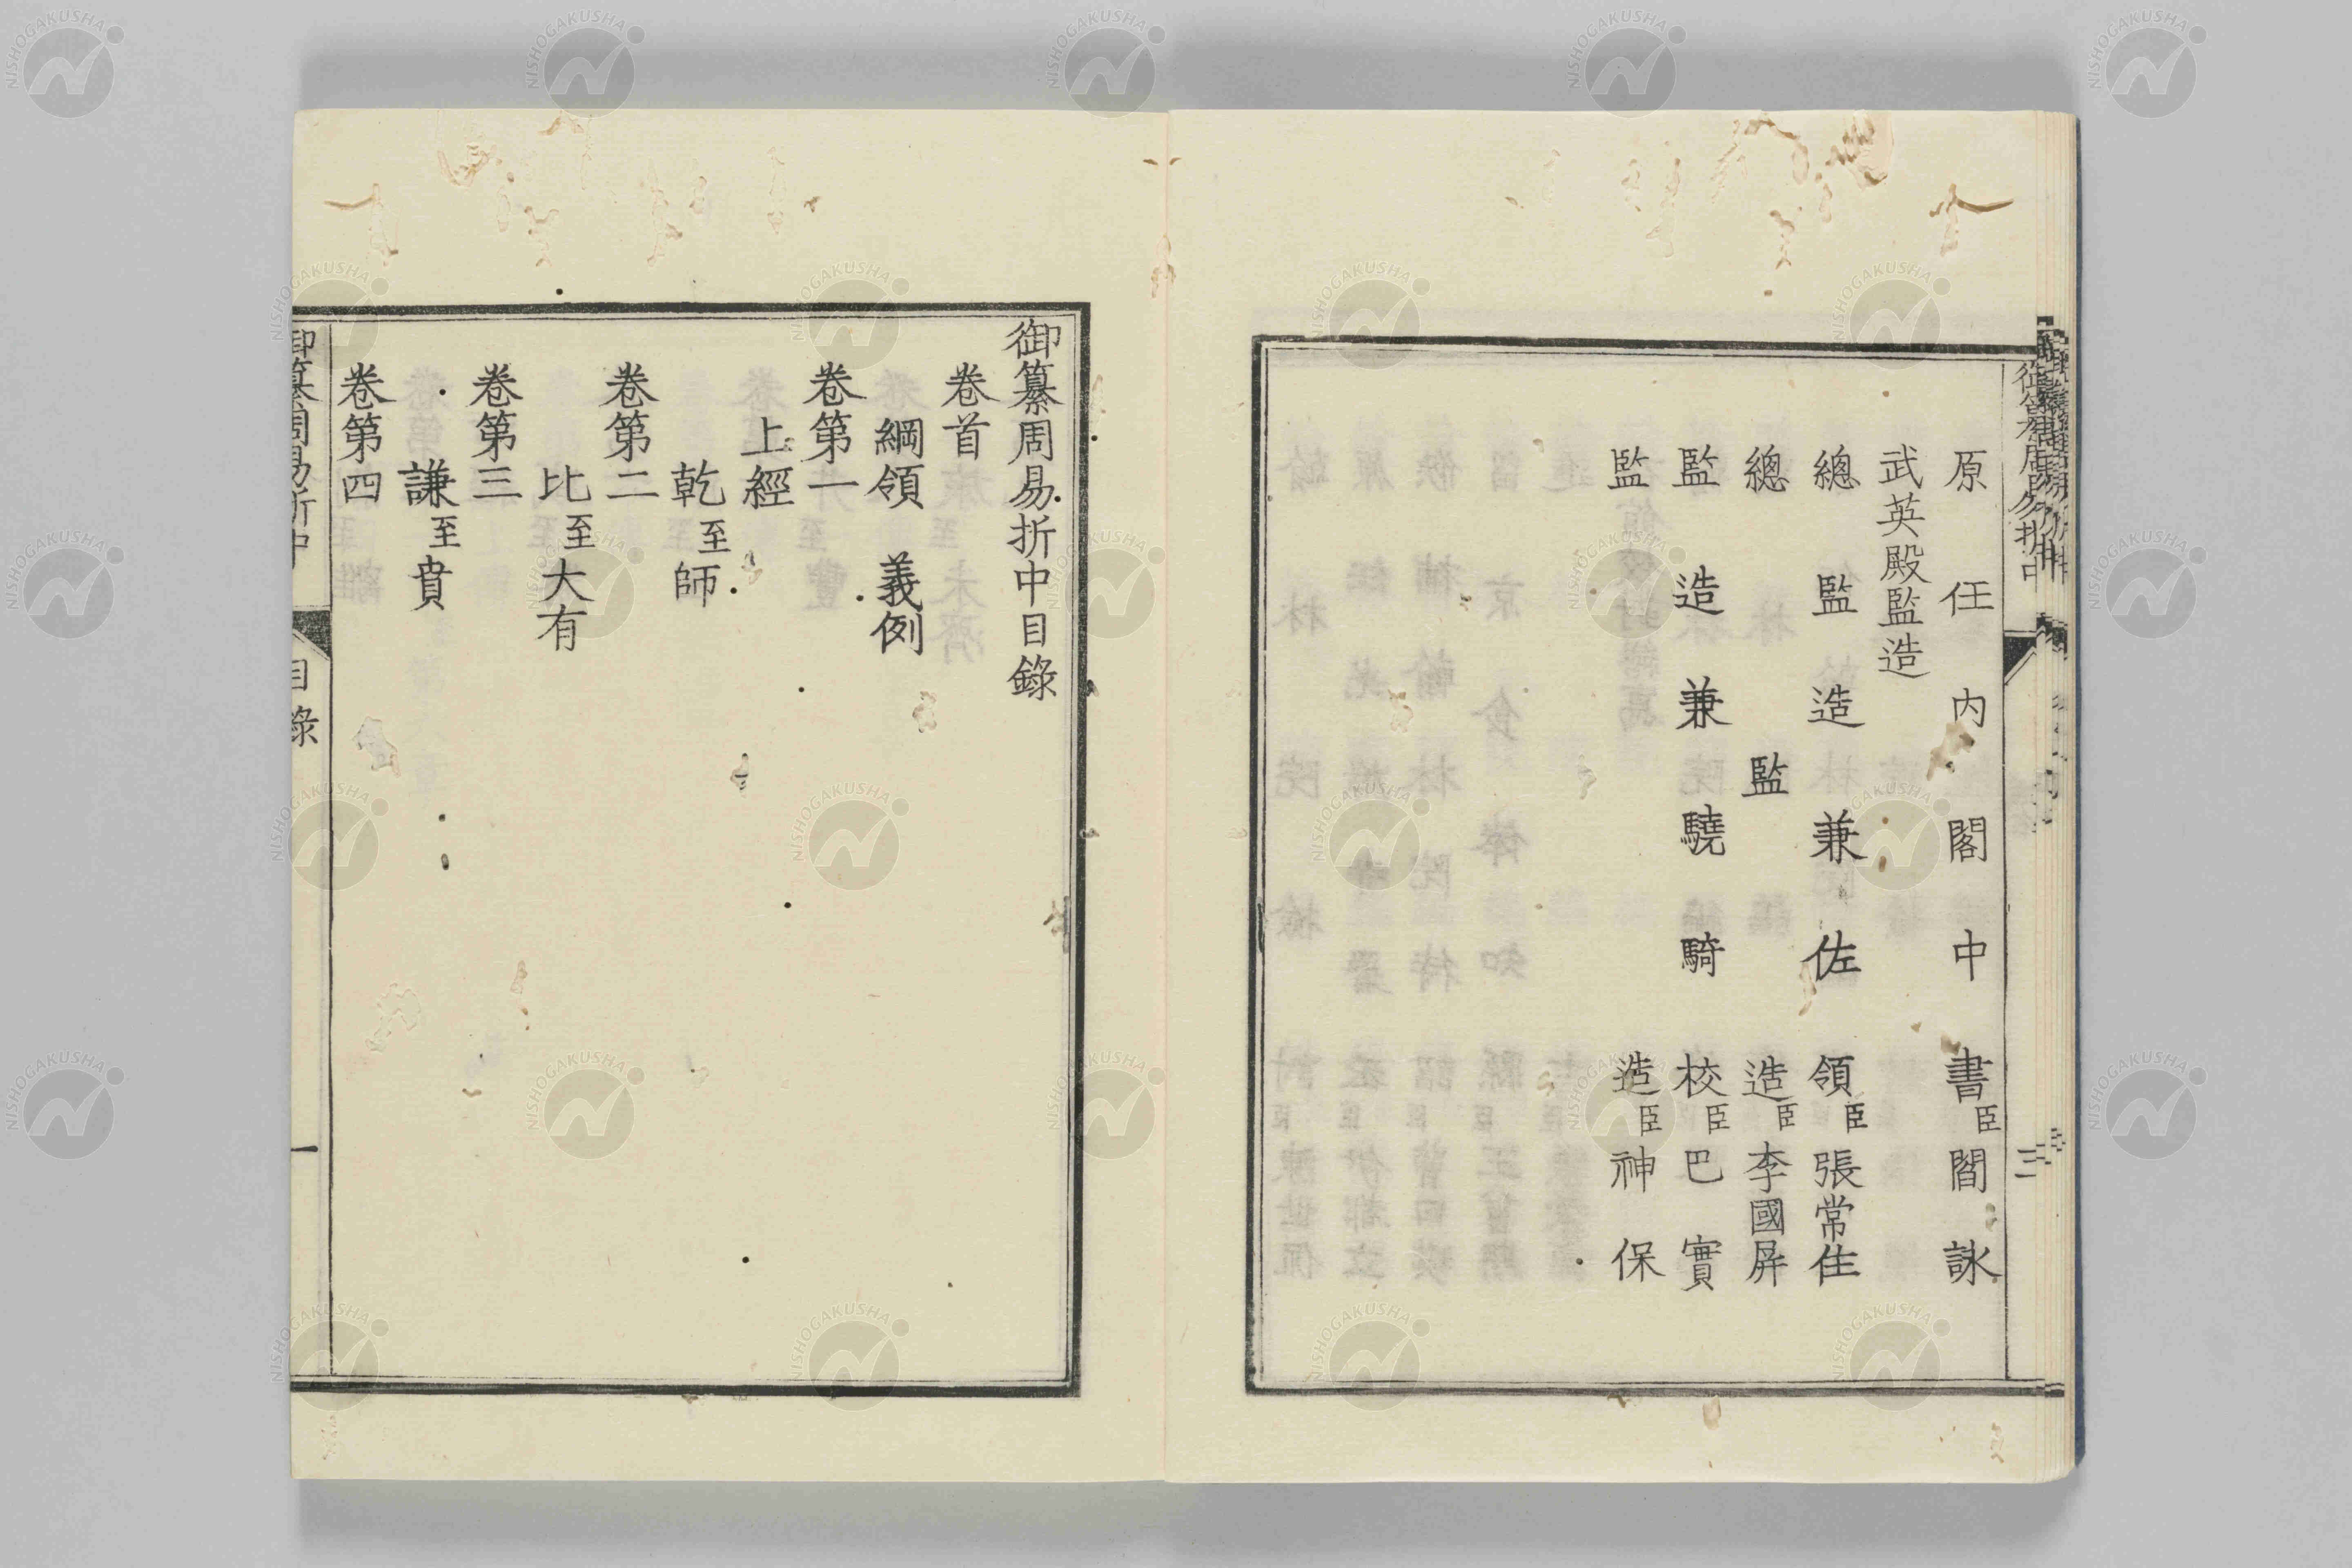 原任內閣中書臣閻詠
武英殿監造
總監造兼佐領臣張常住
總監造臣李國屏
監造兼驍騎校臣巴實
監造臣神保
三
御纂周易折中目錄
卷首
綱領 義例
卷第一
上經
乾至師
卷第二
比至大有
卷第三
謙至賁
卷第四
御纂周易折中 目錄 一
NISHOGAKUSHA